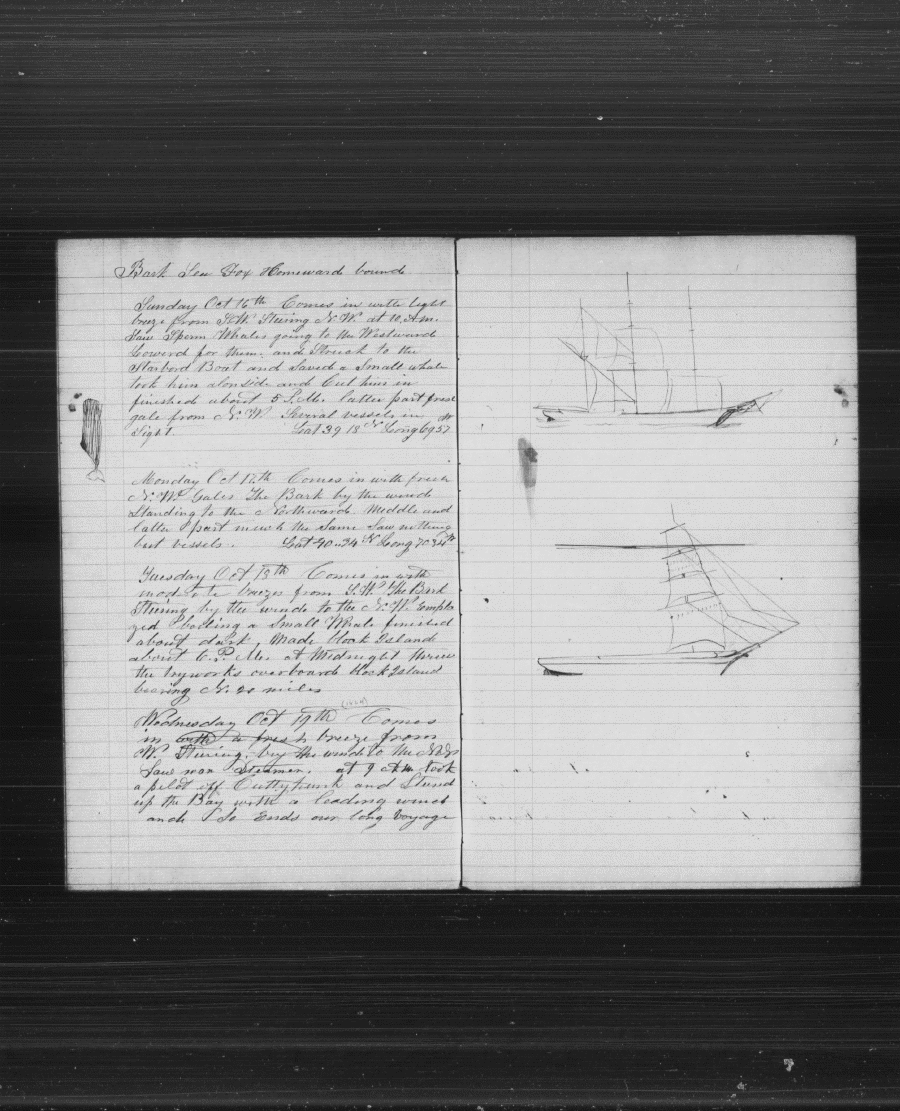 Bark Sea Fox Homeward bound
Sunday Oct 16th Comes in with light
breze from S.W. Steering N.W. at 10 A.m.
Saw Sperm Whales going to the Westward
Lowerd for them, and Struck to the
Starbord Boat and Saved a Small whale
took him alonside and Cut him in
finished about 5 P.M. latter part fresh
gale from N.W. Several vessels in
Sight. Lat 39 18 N Long 69 57 W
Monday Oct 17th Comes in with fresh
N.W. Gales The Bark by the wind
Standing to the Northward Middle and
latter part much the Same Saw nothing
but vessels. Lat 40 - 24 N Long 70 34 W
Tuesday Oct 18th Comes in with
breezes from S.W. The Bark
Steering by the wind to the N.W. Emplo
yed boiling a Small Whale finished
about dark, Made block Island
about 6. P. M. at Midnight threw
the tryworks overboard block Island
bearing N. 20 miles
Wednesday Oct 19th (1864) Comes
in with a fresh breeze from
W. Steering by the wind to the
Saw Steamer. at 9 A.M. took
a pilot off Cuttyhunk and Stood
up the Bay with a leading wind
and So Ends our long Voyage